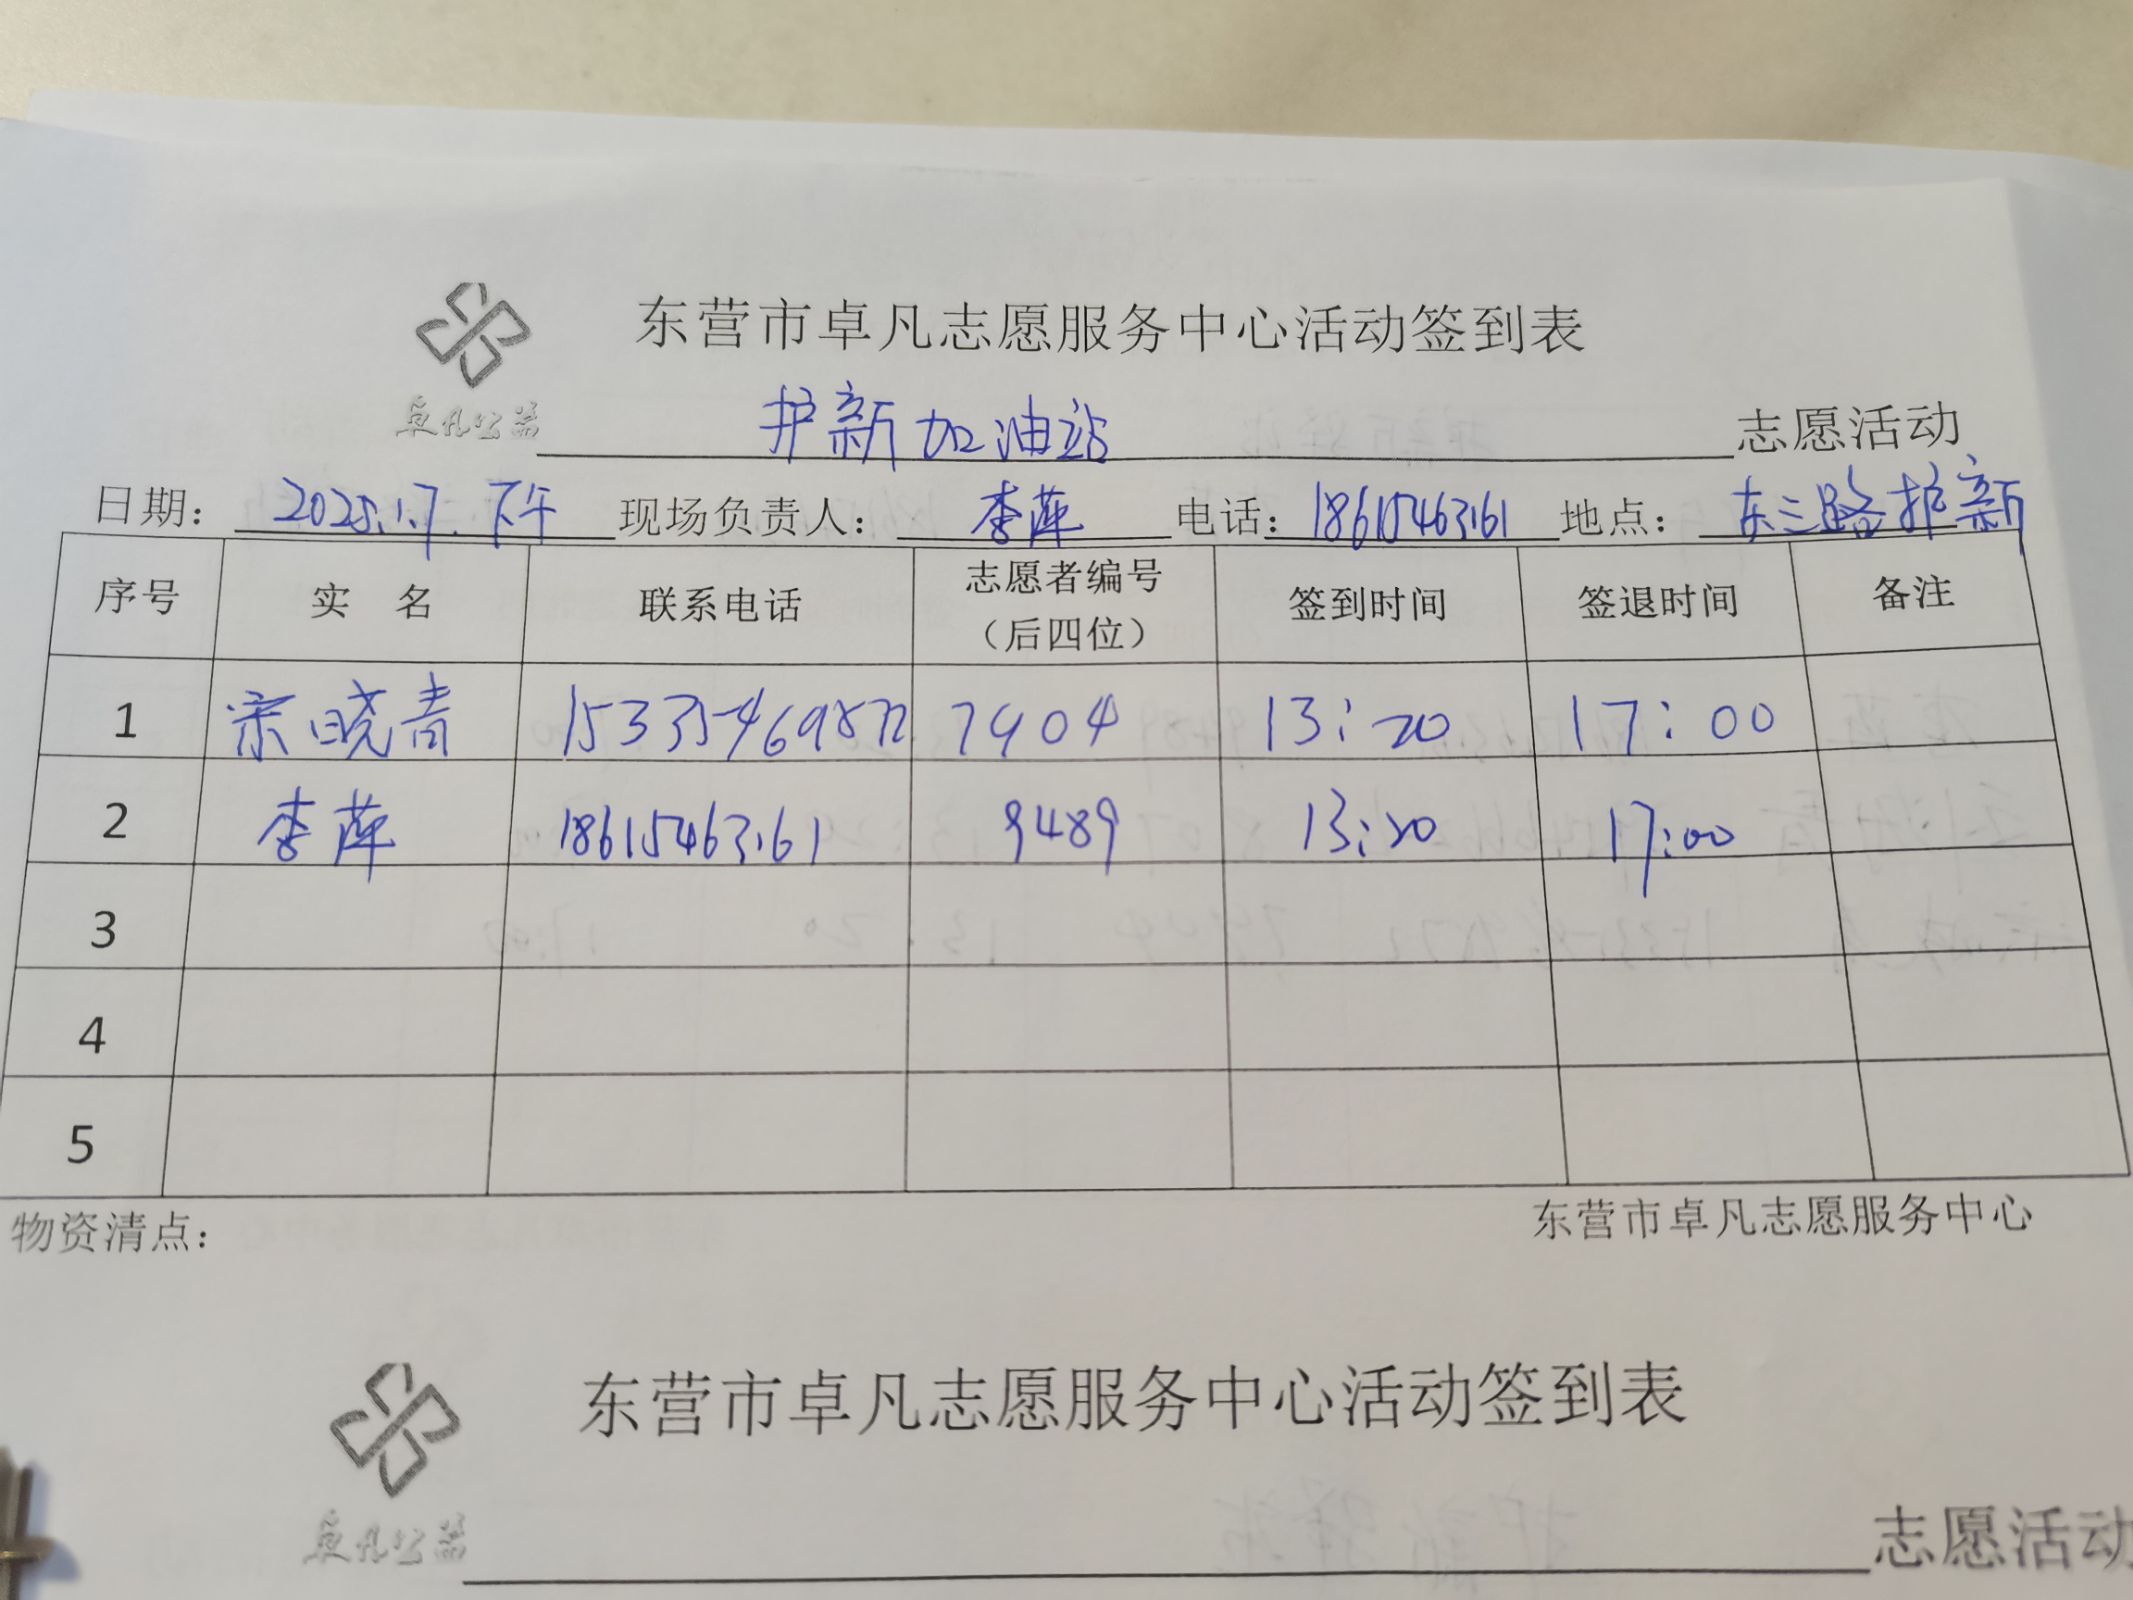 东营市卓凡志愿服务中心活动签到表
卓凡公益 护新加油站 志愿活动
日期: 2025.1.7.下午 现场负责人: 李萍 电话: 18615463161 地点: 东三路护新
序号 实 名 联系电话 志愿者编号（后四位） 签到时间 签退时间 备注
1 宗晓青 15335469872 7904 13:20 17:00
2 李萍 18615463161 9489 13:20 17:00
3
4
5
物资清点: 东营市卓凡志愿服务中心
东营市卓凡志愿服务中心活动签到表
卓凡公益 志愿活动